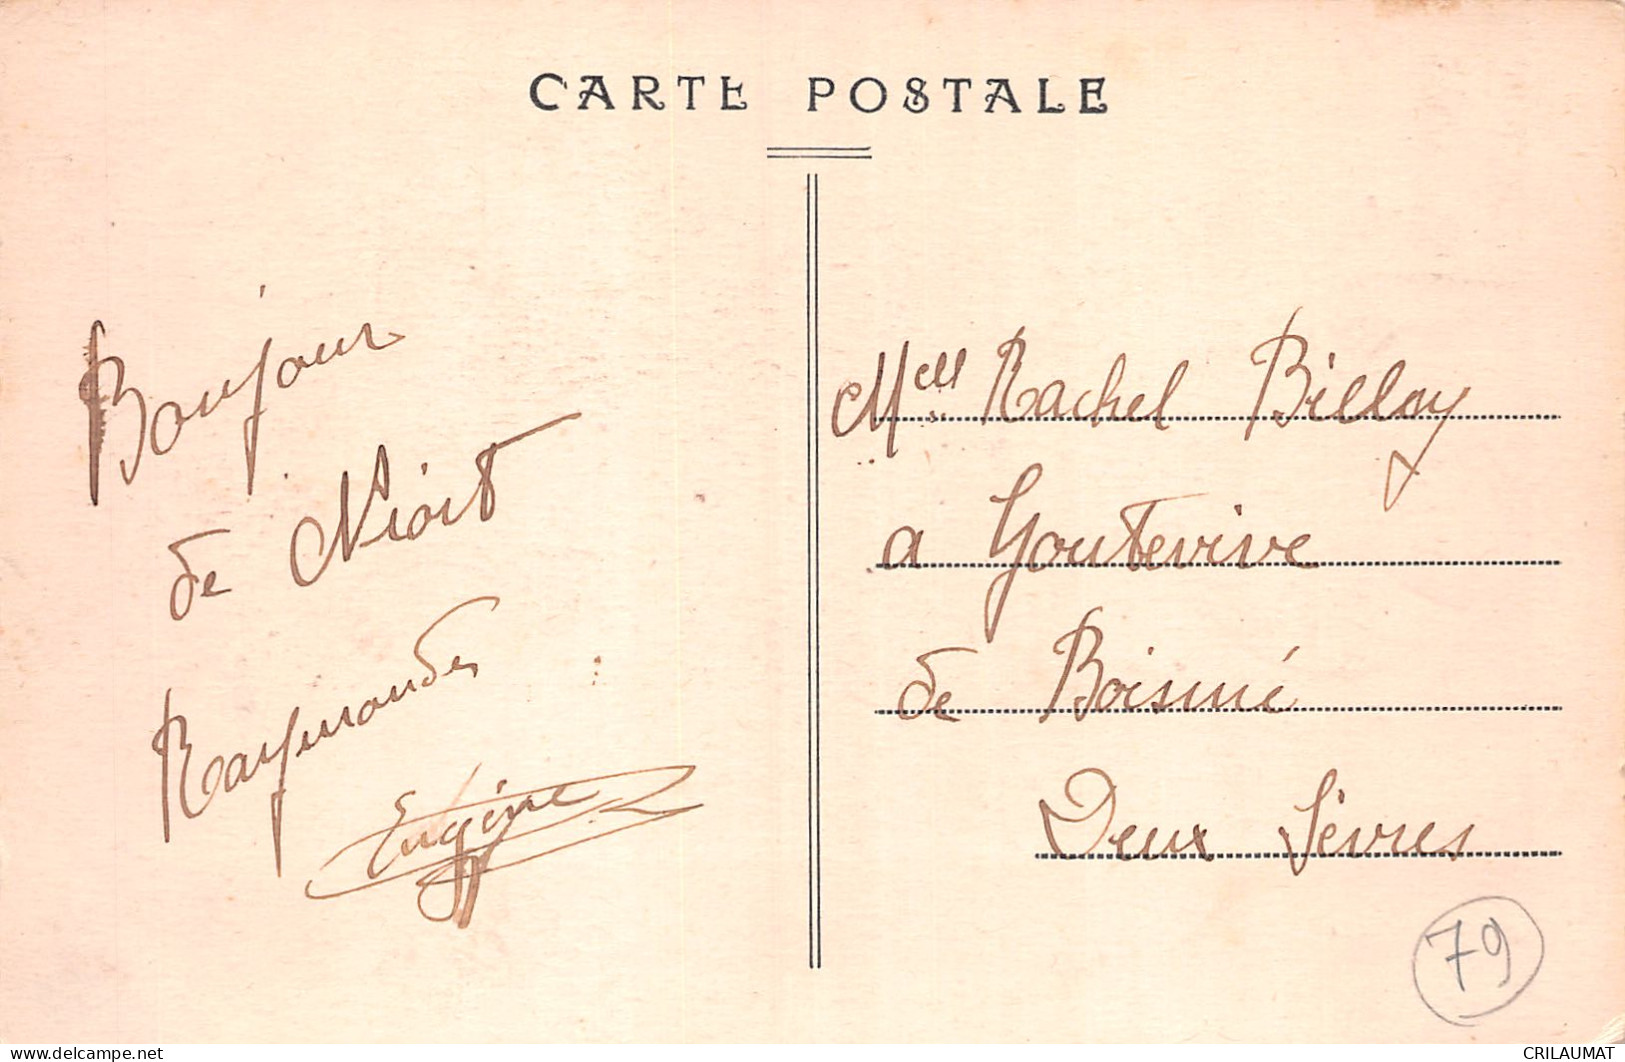 CARTE POSTALE
Bonjour
de Niort
Raymonde
Eugène
Mell Rachel Billoy
a Goutevive
de Boismé
Deux Sèvres
79
delcampe.net
CRILAUMAT